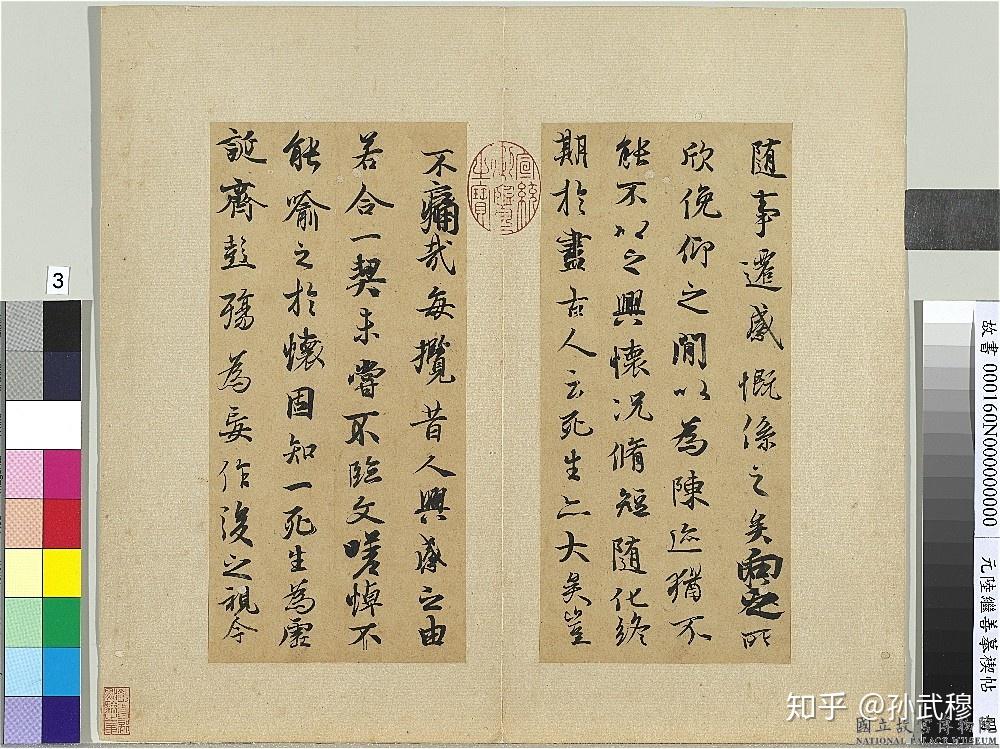 隨事遷感慨係之矣向之所
欣俛仰之間以為陳迹猶不
能不以之興懷況脩短隨化終
期於盡古人云死生亦大矣豈
宣統
御覽
之寶
不痛哉每攬昔人興感之由
若合一契未嘗不臨文嗟悼不
能喻之於懷固知一死生為虛
誕齊彭殤為妄作後之視今
3
故書 000160N000000000 元陸繼善摹禊帖
知乎 @孙武穆
國立故宮博物院
NATIONAL PALACE MUSEUM